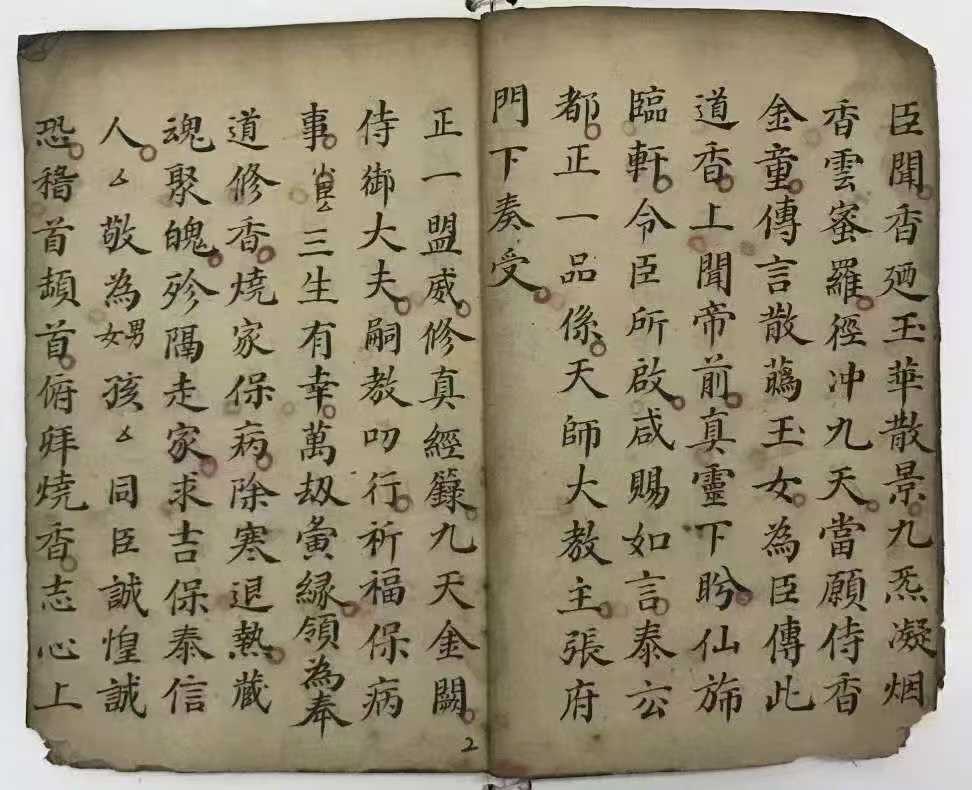 臣聞香廼玉華散景九炁凝烟
香雲蜜羅徑冲九天當願侍香
金童傳言散蘤玉女為臣傳此
道香上聞帝前真靈下盻仙斾
臨軒令臣所啟咸賜如言泰公
都正一品係天師大教主張府
門下奏受
正一盟威修真經籙九天金闕
侍御大夫嗣教叨行祈福保病
事三生有幸萬刼夤緣領為奉
道修香燒家保病除寒退熱藏
魂聚魄殄隔走家求吉保泰信
人厶敬為男女孩厶同臣誠惶誠
恐稽首頓首俯拜燒香志心上
2